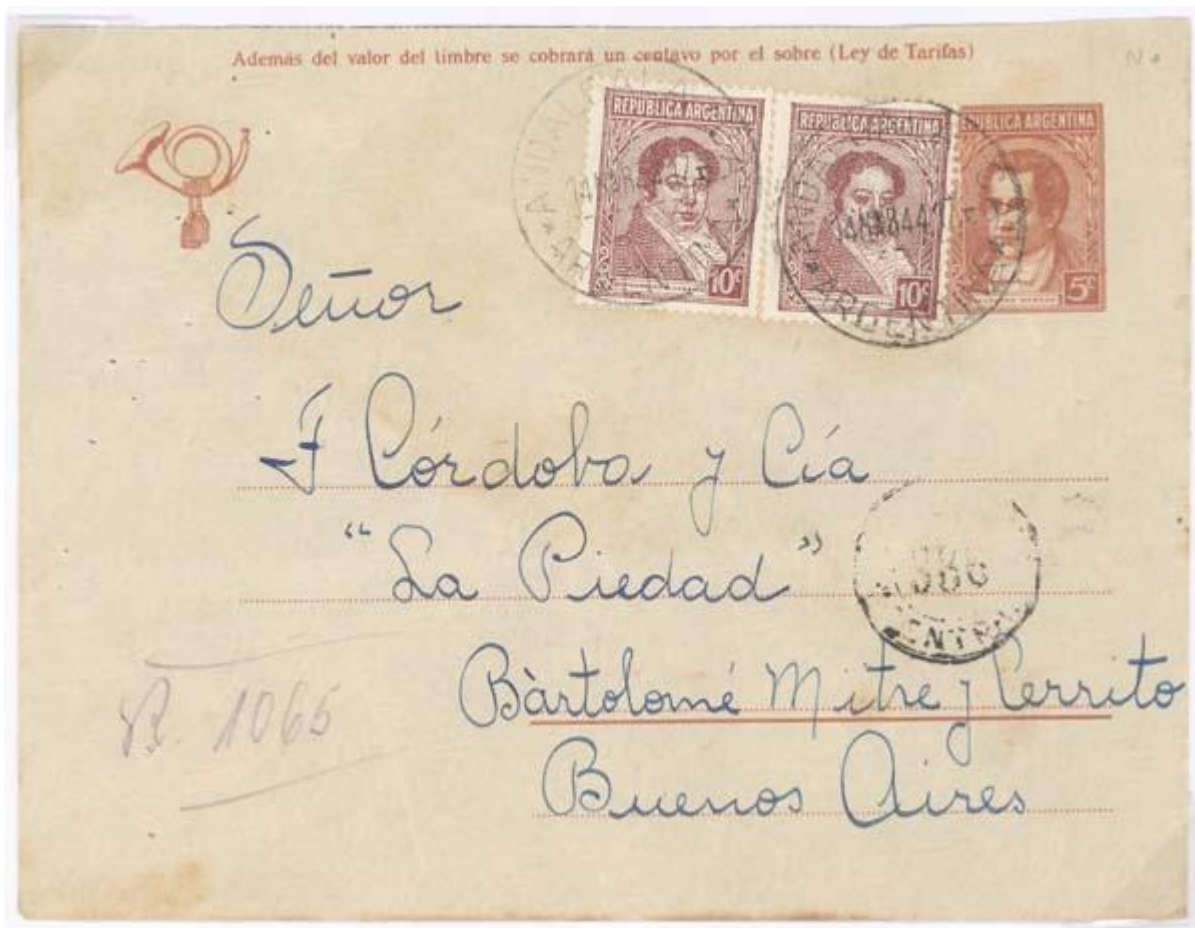 Además del valor del timbre se cobrará un centavo por el sobre (Ley de Tarifas)
REPUBLICA ARGENTINA
10c
REPUBLICA ARGENTINA
10c
REPUBLICA ARGENTINA
5c
ARGENTINA
Señor
F Córdoba y Cía
"La Piedad"
Bàrtolomé Mitre y Cerrito
Buenos Aires
R. 1065